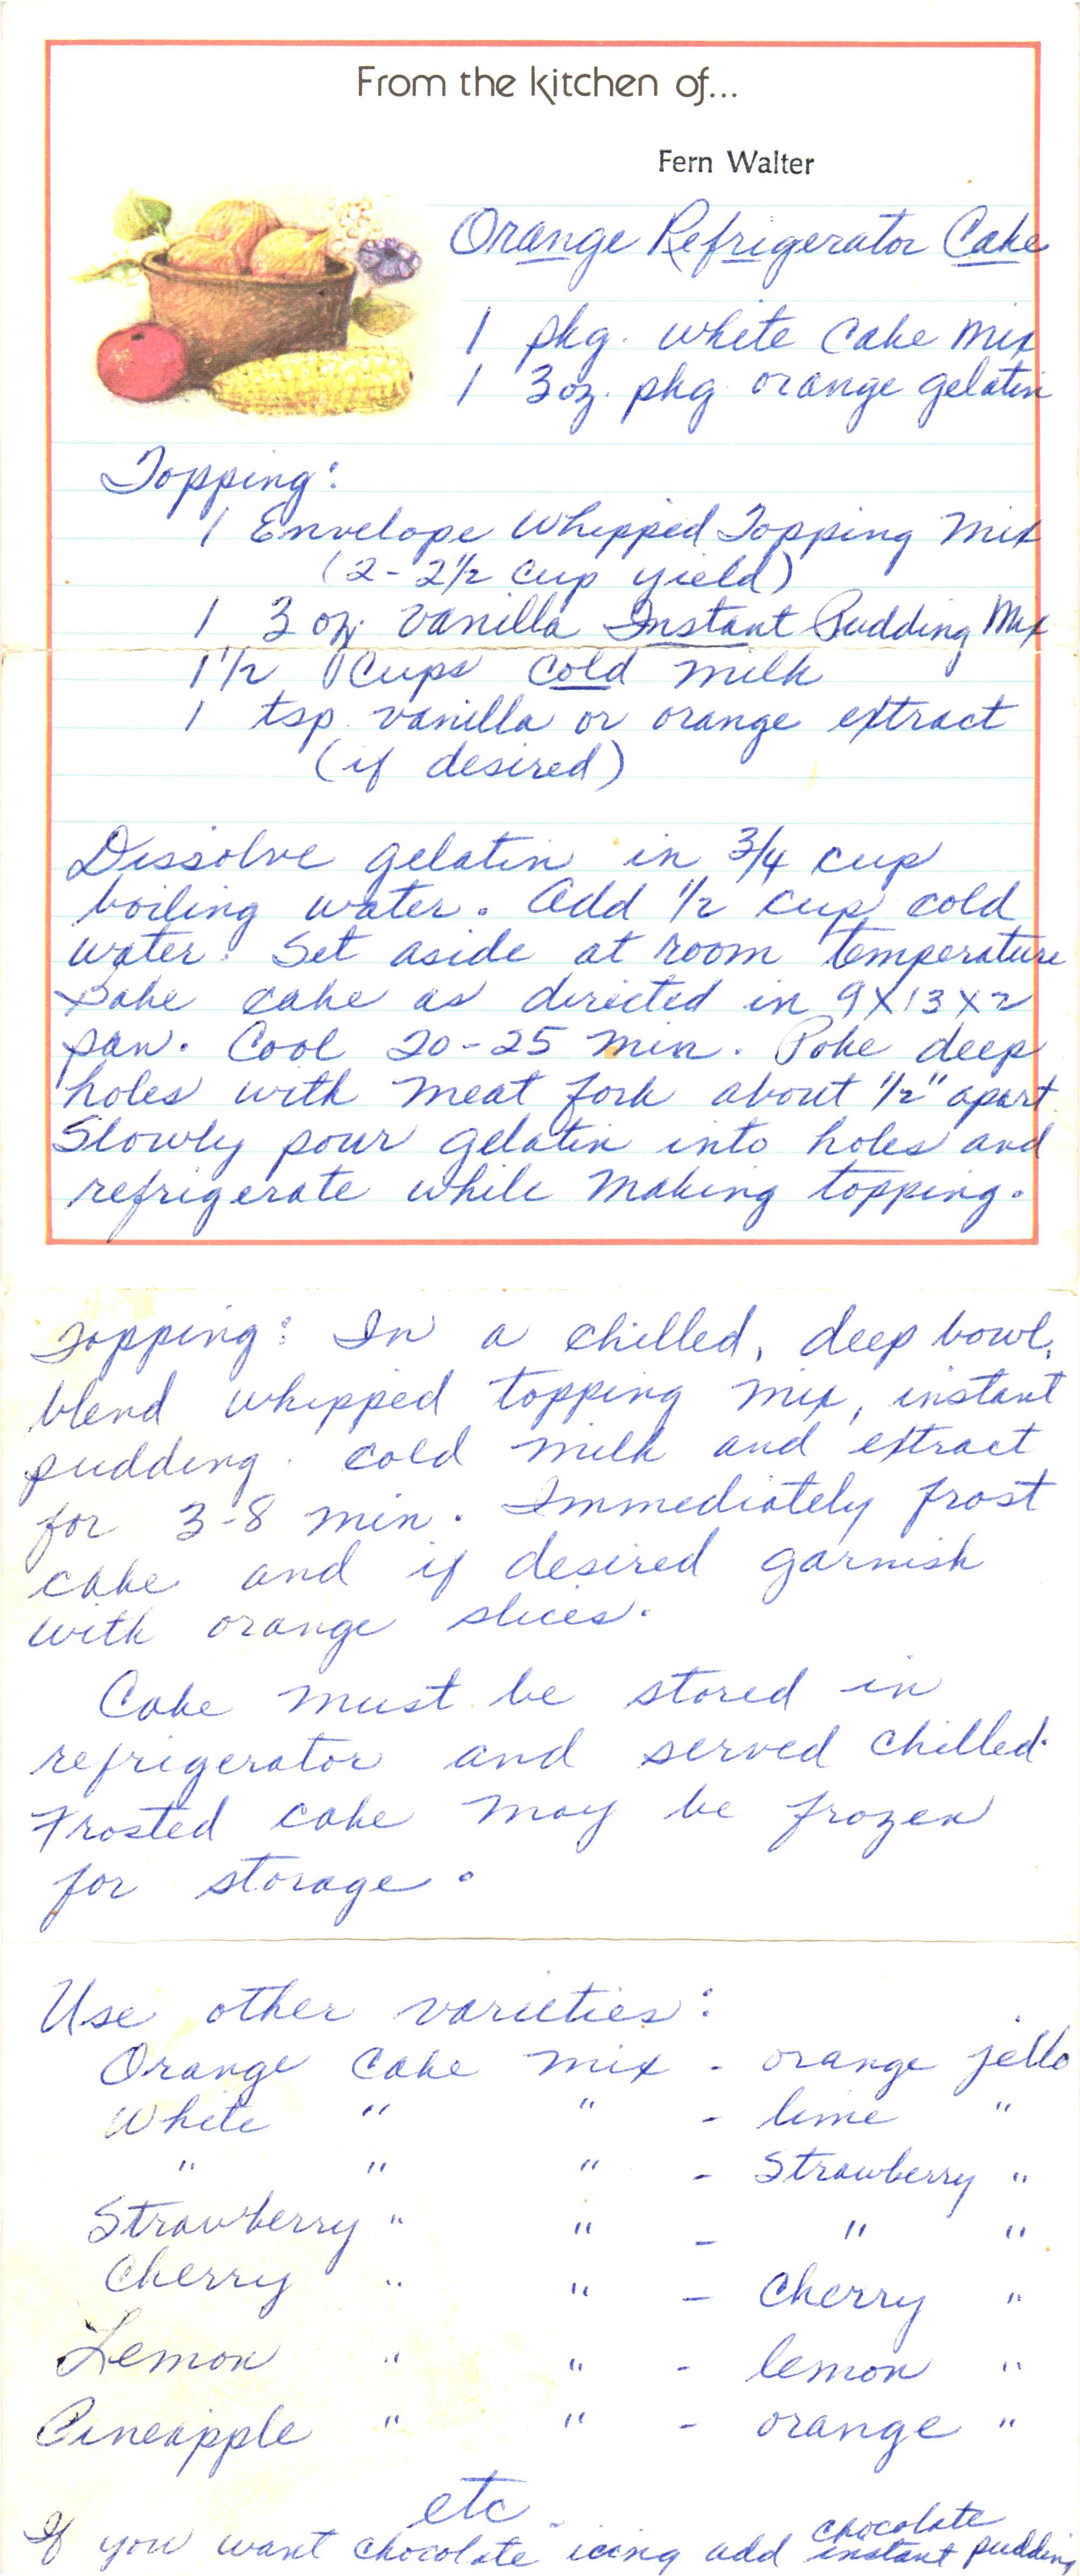 From the kitchen of...
Fern Walter
Orange Refrigerator Cake
1 pkg. white cake mix
1 3 oz. pkg orange gelatin
Topping:
1 Envelope Whipped Topping Mix
(2-2½ cup yield)
1 3 oz. vanilla Instant Pudding Mix
1½ Cups cold milk
1 tsp. vanilla or orange extract
(if desired)
Dissolve gelatin in ¾ cup
boiling water. Add ½ cup cold
water. Set aside at room temperature
Bake cake as directed in 9x13x2
pan. Cool 20-25 min. Poke deep
holes with meat fork about ½" apart.
Slowly pour gelatin into holes and
refrigerate while making topping.
Topping: In a chilled, deep bowl,
blend whipped topping mix, instant
pudding. cold milk and extract
for 3-8 min. Immediately frost
cake and if desired garnish
with orange slices.
Cake must be stored in
refrigerator and served chilled.
Frosted cake may be frozen
for storage.
Use other varieties:
Orange cake mix - orange jello
White " " - lime "
" " " - Strawberry "
Strawberry " " - " "
Cherry " " - Cherry "
Lemon " " - lemon "
Pineapple " " - orange "
etc
If you want chocolate icing add chocolate instant pudding